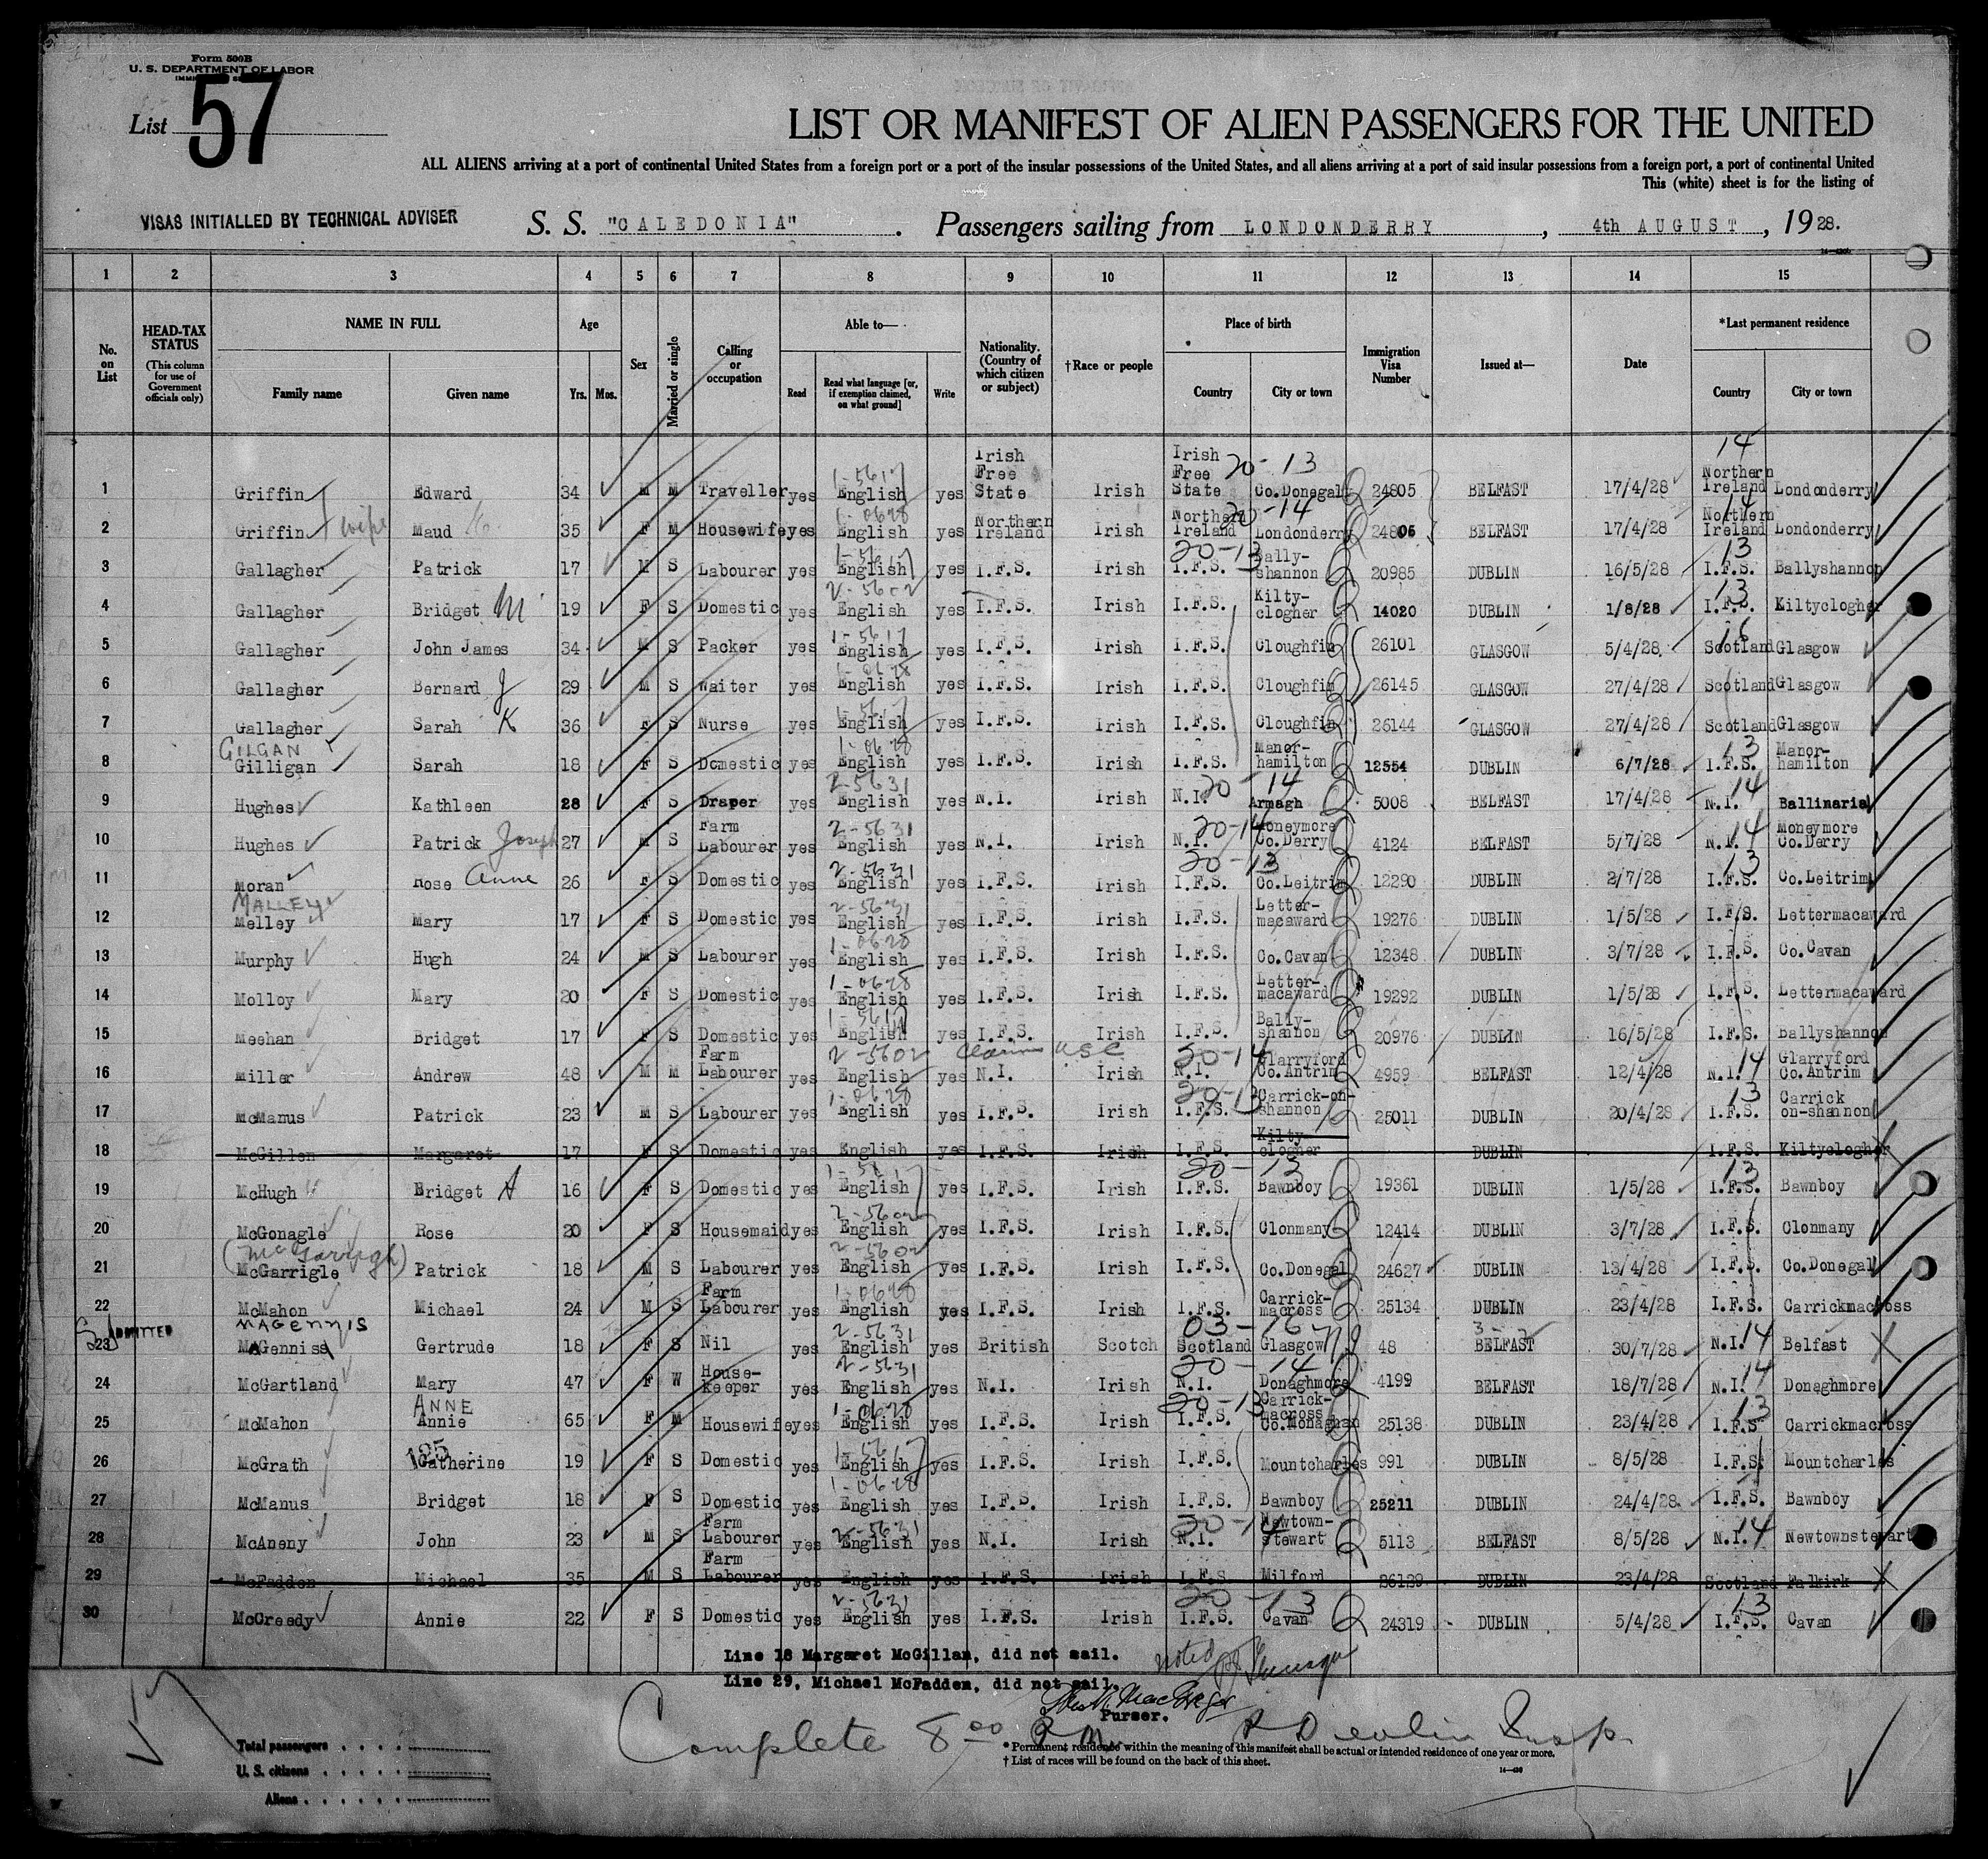 Form 500B
U. S. DEPARTMENT OF LABOR
List 57
LIST OR MANIFEST OF ALIEN PASSENGERS FOR THE UNITED
ALL ALIENS arriving at a port of continental United States from a foreign port or a port of the insular possessions of the United States, and all aliens arriving at a port of said insular possessions from a foreign port, a port of continental United
This (white) sheet is for the listing of
VISAS INITIALLED BY TECHNICAL ADVISER S. S. "CALEDONIA". Passengers sailing from LONDONDERRY, 4th AUGUST, 1928.
1 2 3 4 5 6 7 8 9 10 11 12 13 14 15
No. on List HEAD-TAX STATUS (This column for use of Government officials only) NAME IN FULL Family name Given name Age Yrs. Mos. Sex Married or single Calling or occupation Able to— Read Read what language [or, if exemption claimed, on what ground] Write Nationality. (Country of which citizen or subject) †Race or people Place of birth Country City or town Immigration Visa Number Issued at— Date *Last permanent residence Country City or town
1 Griffin Edward 34 M M Traveller yes 1-5617 English yes Irish Free State Irish Irish Free State 20-13 Co.Donegal 24805 BELFAST 17/4/28 14 Northern Ireland Londonderry
2 Griffin wife Maud 35 F M Housewife yes 1-0628 English yes Northern Ireland Irish Northern Ireland 20-14 Londonderry 24806 BELFAST 17/4/28 14 Northern Ireland Londonderry
3 Gallagher Patrick 17 M S Labourer yes 1-5617 English yes I.F.S. Irish 20-13 I.F.S. Bally-shannon 20985 DUBLIN 16/5/28 13 I.F.S. Ballyshannon
4 Gallagher Bridget M 19 F S Domestic yes 2-5602 English yes I.F.S. Irish I.F.S. Kilty-clogher 14020 DUBLIN 1/8/28 13 I.F.S. Kiltyclogher
5 Gallagher John James 34 M S Packer yes 1-5617 English yes I.F.S. Irish I.F.S. Cloughfin 26101 GLASGOW 5/4/28 16 Scotland Glasgow
6 Gallagher Bernard J 29 M S Waiter yes 1-0628 English yes I.F.S. Irish I.F.S. Cloughfin 26145 GLASGOW 27/4/28 Scotland Glasgow
7 Gallagher Sarah K 36 F S Nurse yes 1-5617 English yes I.F.S. Irish I.F.S. Cloughfin 26144 GLASGOW 27/4/28 Scotland Glasgow
8 GILGAN Gilligan Sarah 18 F S Domestic yes 1-0628 English yes I.F.S. Irish I.F.S. Manor-hamilton 12554 DUBLIN 6/7/28 13 I.F.S. Manor-hamilton
9 Hughes Kathleen 28 F S Draper yes 2-5631 English yes N.I. Irish N.I. 20-14 Armagh 5008 BELFAST 17/4/28 N.I. 14 Ballinaria
10 Hughes Patrick Joseph 27 M S Farm Labourer yes 2-5631 English yes N.I. Irish N.I. 20-14 Moneymore Co.Derry 4124 BELFAST 5/7/28 N.I. 14 Moneymore Co.Derry
11 Moran Rose Anne 26 F S Domestic yes 2-5631 English yes I.F.S. Irish 20-13 I.F.S. Co.Leitrim 12290 DUBLIN 2/7/28 13 I.F.S. Co.Leitrim
12 MALLEY Melley Mary 17 F S Domestic yes 2-5631 English yes I.F.S. Irish I.F.S. Letter-macaward 19276 DUBLIN 1/5/28 I.F.S. Lettermacaward
13 Murphy Hugh 24 M S Labourer yes 1-0628 English yes I.F.S. Irish I.F.S. Co.Cavan 12348 DUBLIN 3/7/28 I.F.S. Co.Cavan
14 Molloy Mary 20 F S Domestic yes 1-0628 English yes I.F.S. Irish I.F.S. Letter-macaward 19292 DUBLIN 1/5/28 I.F.S. Lettermacaward
15 Meehan Bridget 17 F S Domestic yes 1-5617 English yes I.F.S. Irish I.F.S. Bally-shannon 20976 DUBLIN 16/5/28 I.F.S. Ballyshannon
16 Miller Andrew 48 M M Farm Labourer yes 2-5602 English yes Claims U.S.C. N.I. Irish 20-14 N.I. Glarryford Co.Antrim 4959 BELFAST 12/4/28 N.I. 14 Glarryford Co.Antrim
17 McManus Patrick 23 M S Labourer yes 1-0628 English yes I.F.S. Irish 20-13 I.F.S. Carrick-on-shannon 25011 DUBLIN 20/4/28 13 I.F.S. Carrick on-shannon
18 McGillen Margaret 17 F S Domestic yes English yes I.F.S. Irish I.F.S. Kilty-clogher DUBLIN I.F.S. Kiltyclogher
19 McHugh Bridget A 16 F S Domestic yes 1-5617 English yes I.F.S. Irish 20-13 I.F.S. Bawnboy 19361 DUBLIN 1/5/28 13 I.F.S. Bawnboy
20 McGonagle Rose 20 F S Housemaid yes 2-5602 English yes I.F.S. Irish I.F.S. Clonmany 12414 DUBLIN 3/7/28 I.F.S. Clonmany
21 (McGarrigh) McGarrigle Patrick 18 M S Labourer yes 2-5602 English yes I.F.S. Irish I.F.S. Co.Donegal 24627 DUBLIN 13/4/28 I.F.S. Co.Donegal
22 McMahon Michael 24 M S Farm Labourer yes 1-0628 English yes I.F.S. Irish I.F.S. Carrick-macross 25134 DUBLIN 23/4/28 I.F.S. Carrickmacross
ADMITTED 23 MAGENNIS McGenniss Gertrude 18 F S Nil yes 2-5631 English yes British Scotch 03-16 Scotland Glasgow 48 BELFAST 30/7/28 N.I. 14 Belfast
24 McGartland Mary 47 F W House-keeper yes 2-5631 English yes N.I. Irish 20-14 N.I. Donaghmore 4199 BELFAST 18/7/28 N.I. 14 Donaghmore
25 McMahon ANNE Annie 65 F M Housewife yes 1-0628 English yes I.F.S. Irish 20-13 I.F.S. Carrick-macross Co.Monaghan 25138 DUBLIN 23/4/28 13 I.F.S Carrickmacross
26 McGrath 195 Catherine 19 F S Domestic yes 1-5617 English yes I.F.S. Irish I.F.S. Mountcharles 991 DUBLIN 8/5/28 I.F.S. Mountcharles
27 McManus Bridget 18 F S Domestic yes 1-0628 English yes I.F.S. Irish I.F.S. Bawnboy 25211 DUBLIN 24/4/28 I.F.S. Bawnboy
28 McAneny John 23 M S Farm Labourer yes 2-5631 English yes N.I. Irish 20-14 N.I. Newtown-stewart 5113 BELFAST 8/5/28 N.I. 14 Newtownstewart
29 McFadden Michael 35 M S Farm Labourer yes English yes I.F.S. Irish I.F.S. Milford 26129 DUBLIN 23/4/28 Scotland Falkirk
30 McCreedy Annie 22 F S Domestic yes 2-5631 English yes I.F.S. Irish 20-13 I.F.S. Cavan 24319 DUBLIN 5/4/28 13 I.F.S. Cavan
Line 18 Margaret McGillan, did not sail. noted
Line 29, Michael McFadden, did not sail.
MacGregor
Purser.
Complete 8 00 P.M. Devlin Insp.
Total passengers
U. S. citizens
Aliens
* Permanent residence within the meaning of this manifest shall be actual or intended residence of one year or more.
† List of races will be found on the back of this sheet.